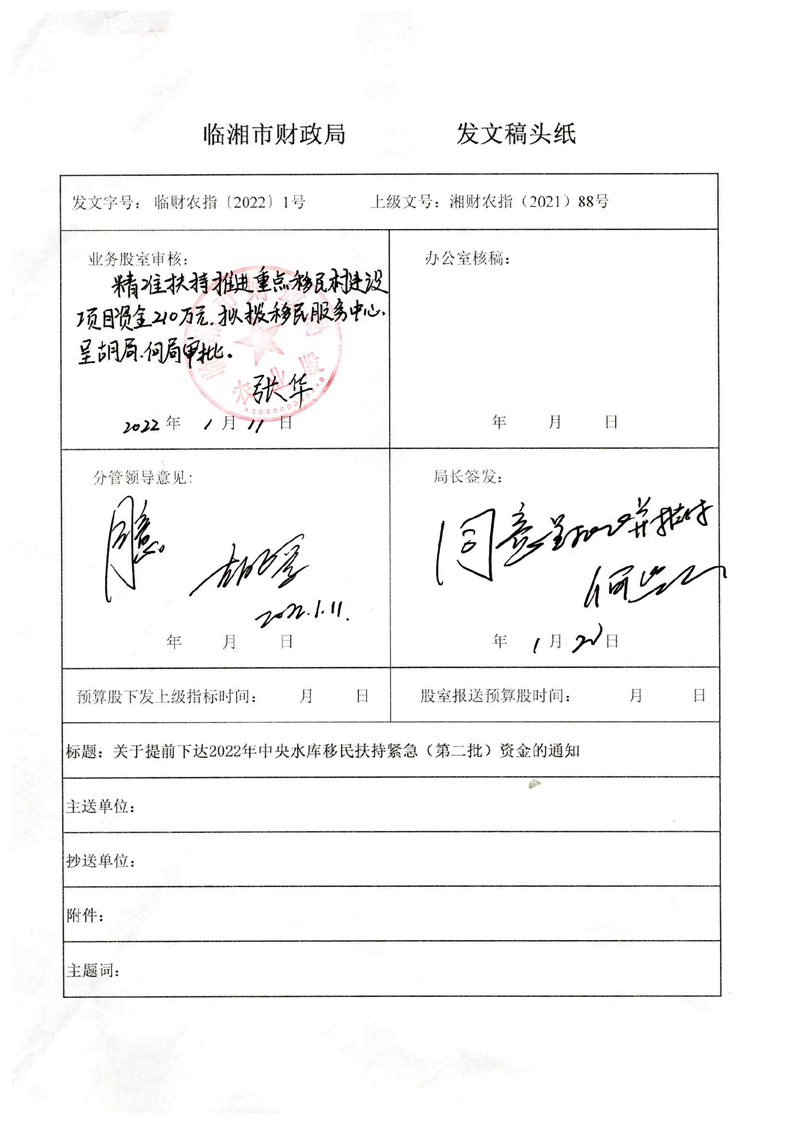 临湘市财政局 发文稿头纸
发文字号：临财农指〔2022〕1号 上级文号：湘财农指（2021）88号
业务股室审核：
精准扶持推进重点移民村建设
项目资金210万元，拟拨移民服务中心，
呈胡局、何局审批。
张华
农业股
2022年 1月 11日
办公室核稿：
年 月 日
分管领导意见：
同意。
胡
2022.1.11.
年 月 日
局长签发：
同意呈
何
年 1月 20日
预算股下发上级指标时间： 月 日
股室报送预算股时间： 月 日
标题：关于提前下达2022年中央水库移民扶持紧急（第二批）资金的通知
主送单位：
抄送单位：
附件：
主题词：